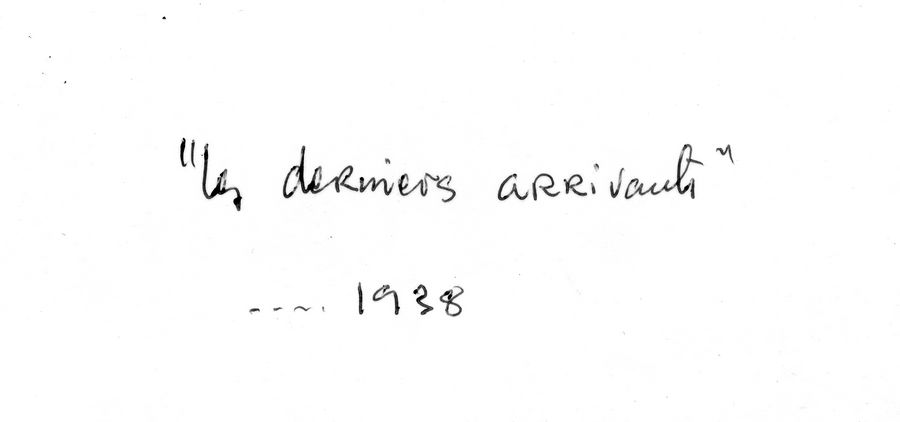 "les derniers arrivants"
----. 1938